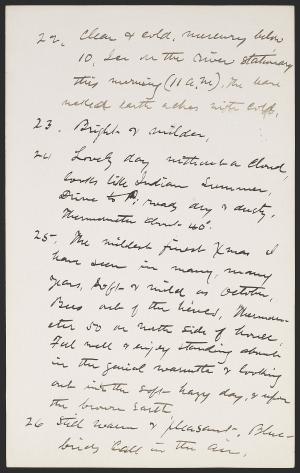 22. Clear & cold, mercury below
10. Ice on the river stationary
this morning (11 A.M.), the bare
naked earth aches with cold.
23. Bright & milder.
24 Lovely day without a cloud,
looks like Indian Summer,
Drive to P. roads dry & dusty,
Thermometer about 40°.
25. The mildest finest Xmas I
have seen in many, many
years, soft & mild as October,
Bees out of the hives, Thermom-
eter 50 on north side of house,
Feel well & enjoy standing about
in the genial warmth & looking
out into the soft hazy day, & upon
the brown earth
26 Still warm & pleasant. Blue-
birds call in the air.